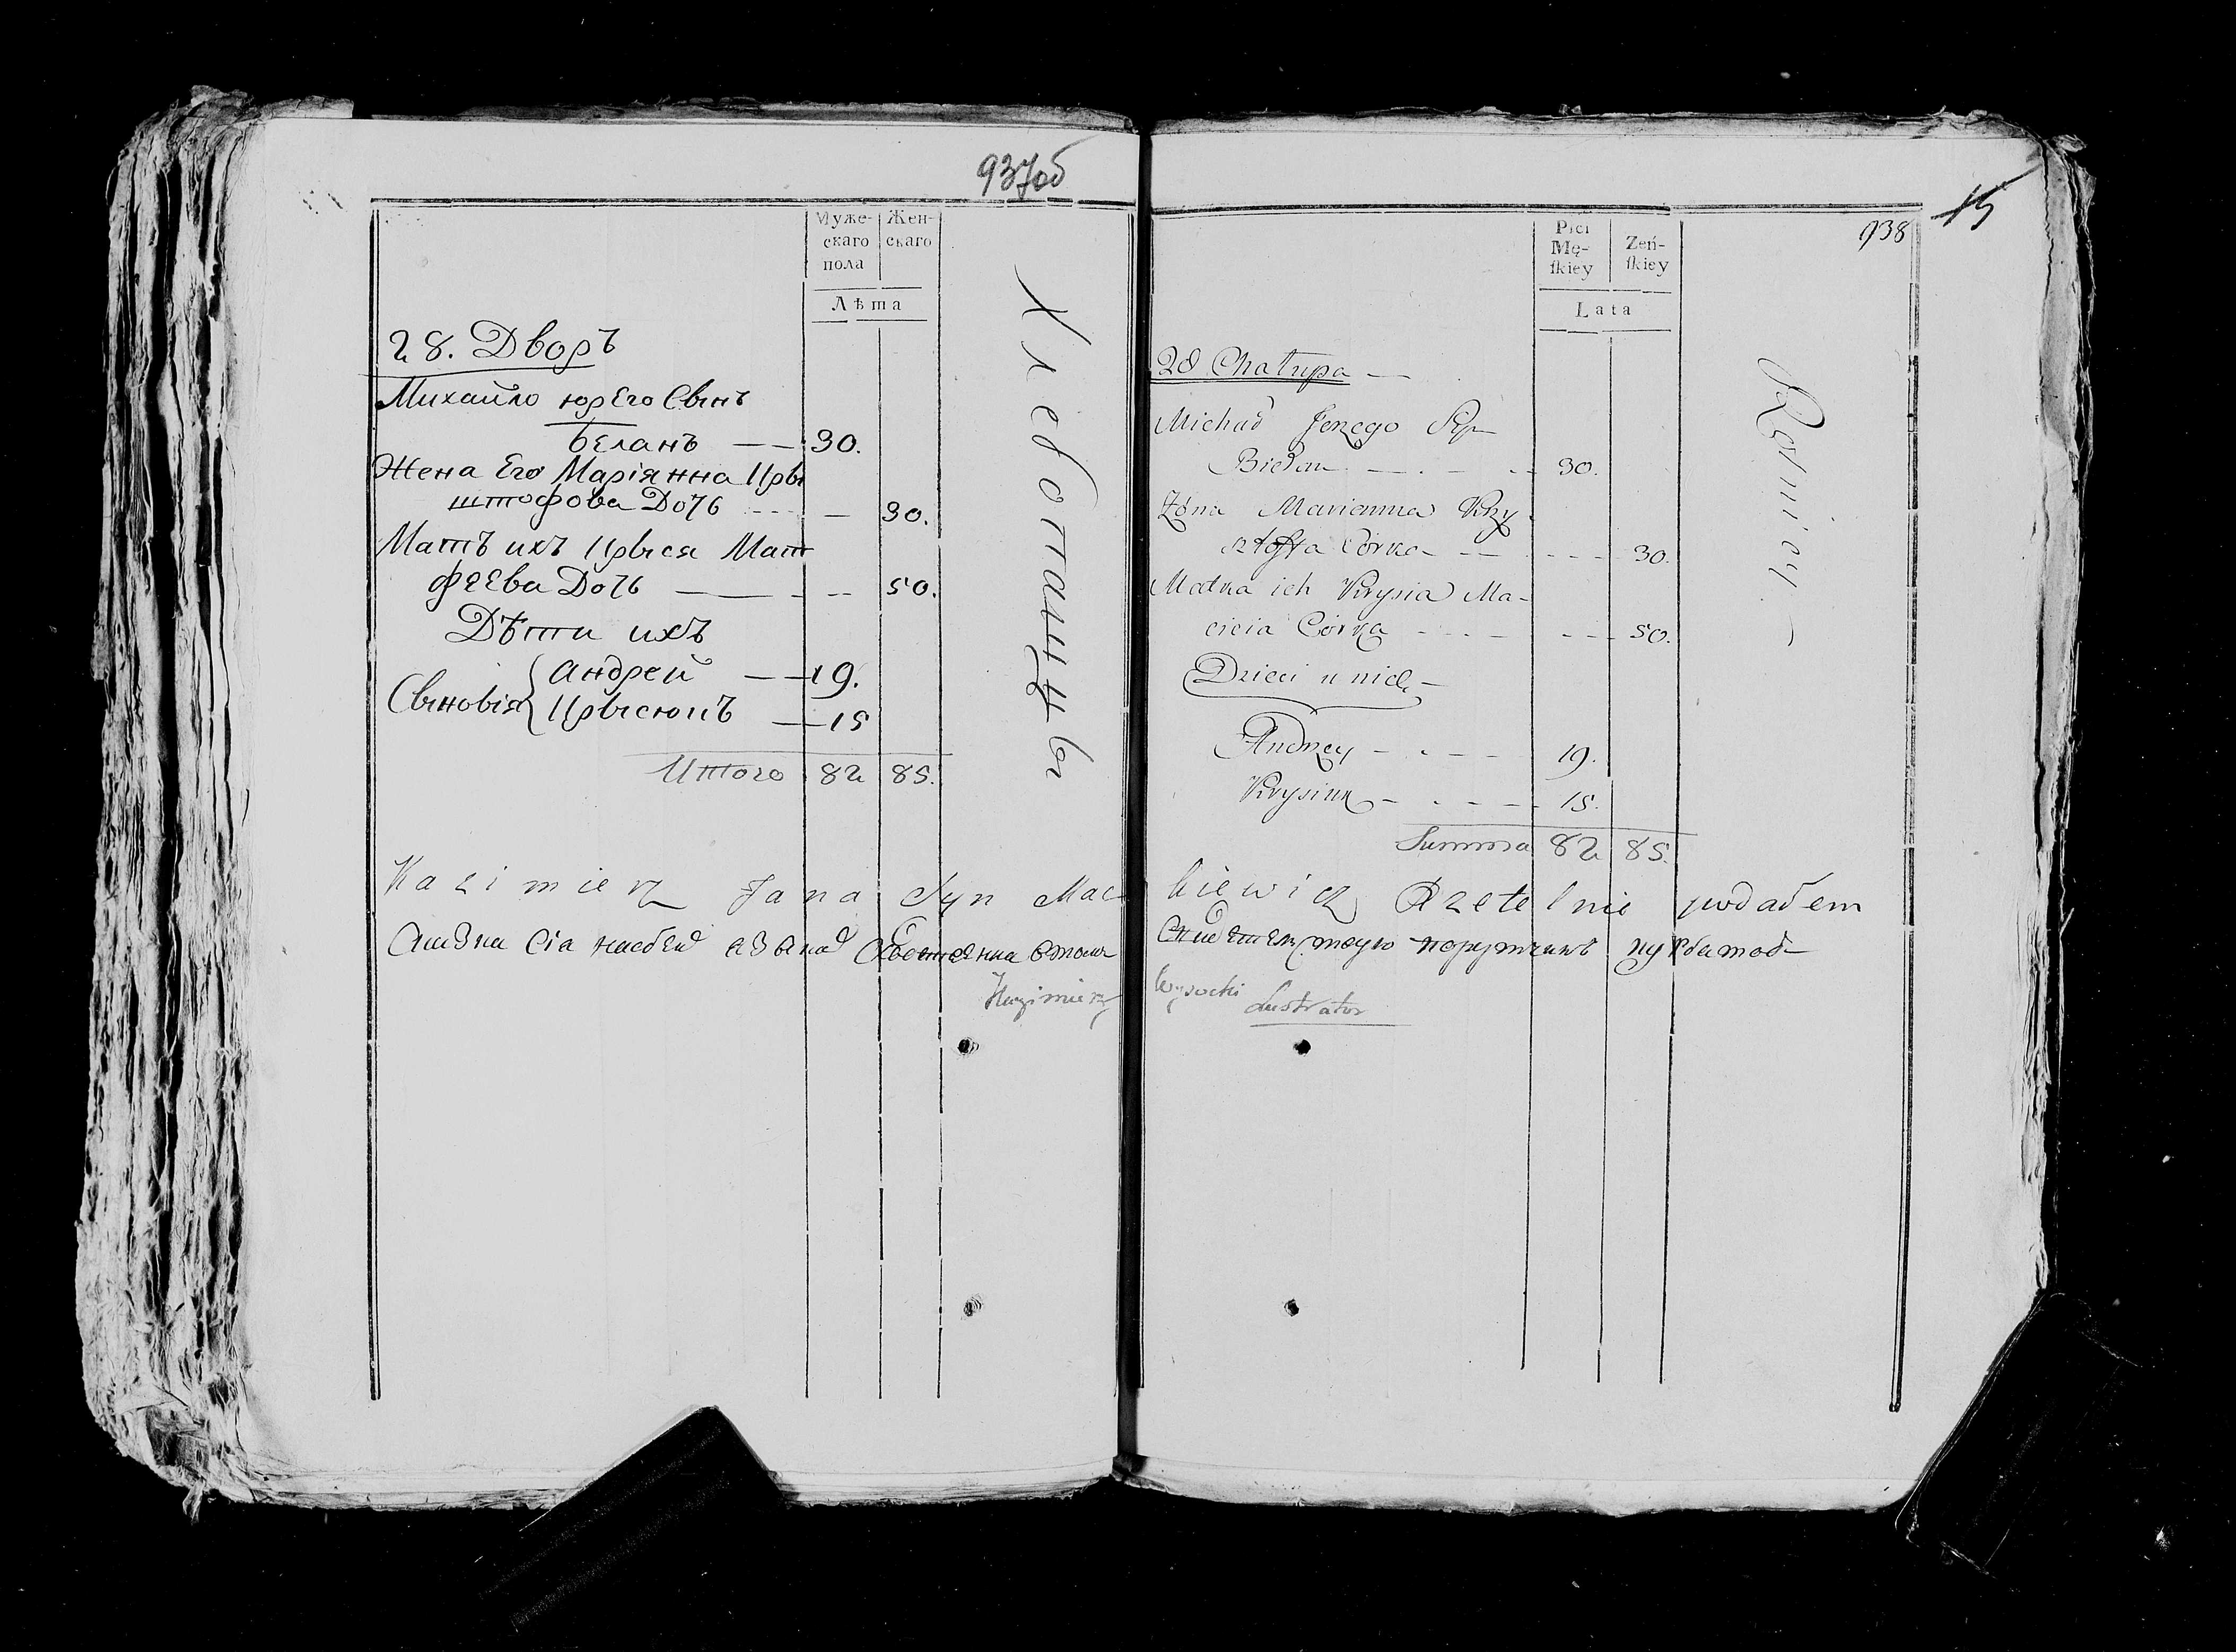 937об
Муже-
скаго
пола
Жен-
скаго
Лѣта
28. Дворъ
Михайло юрЕго Сынъ
бЕланъ — — 30.
Жена Его Маріянна Кры
штофова Дочь — 30.
Мать ихъ Крыся Мат
феЕва Дочь — 50.
Дѣти ихъ
Сыновія { Андрей — 19.
Крысюкъ — 15
Итого 82 85.
Хлебопашцы
15
938
Płci
Mę-
ſkiey
Zeń-
ſkiey
Lata
28 Chałupa —
Michał Jerzego Syn
Biełan — 30.
Żona Marianna Krzy
sztofa Corka — 30.
Matka ich Krysia Ma-
cieia Córka — 50.
Dzieci u nich —
Andrzey — 19.
Krysiuk — 15.
Summa 82 85.
Rolnicy
Kazimierz Jana Syn Mac-kiewicz Rzetelnie podałem
Сія
порутчикъ
Kazimierz Wysocki Lustrator